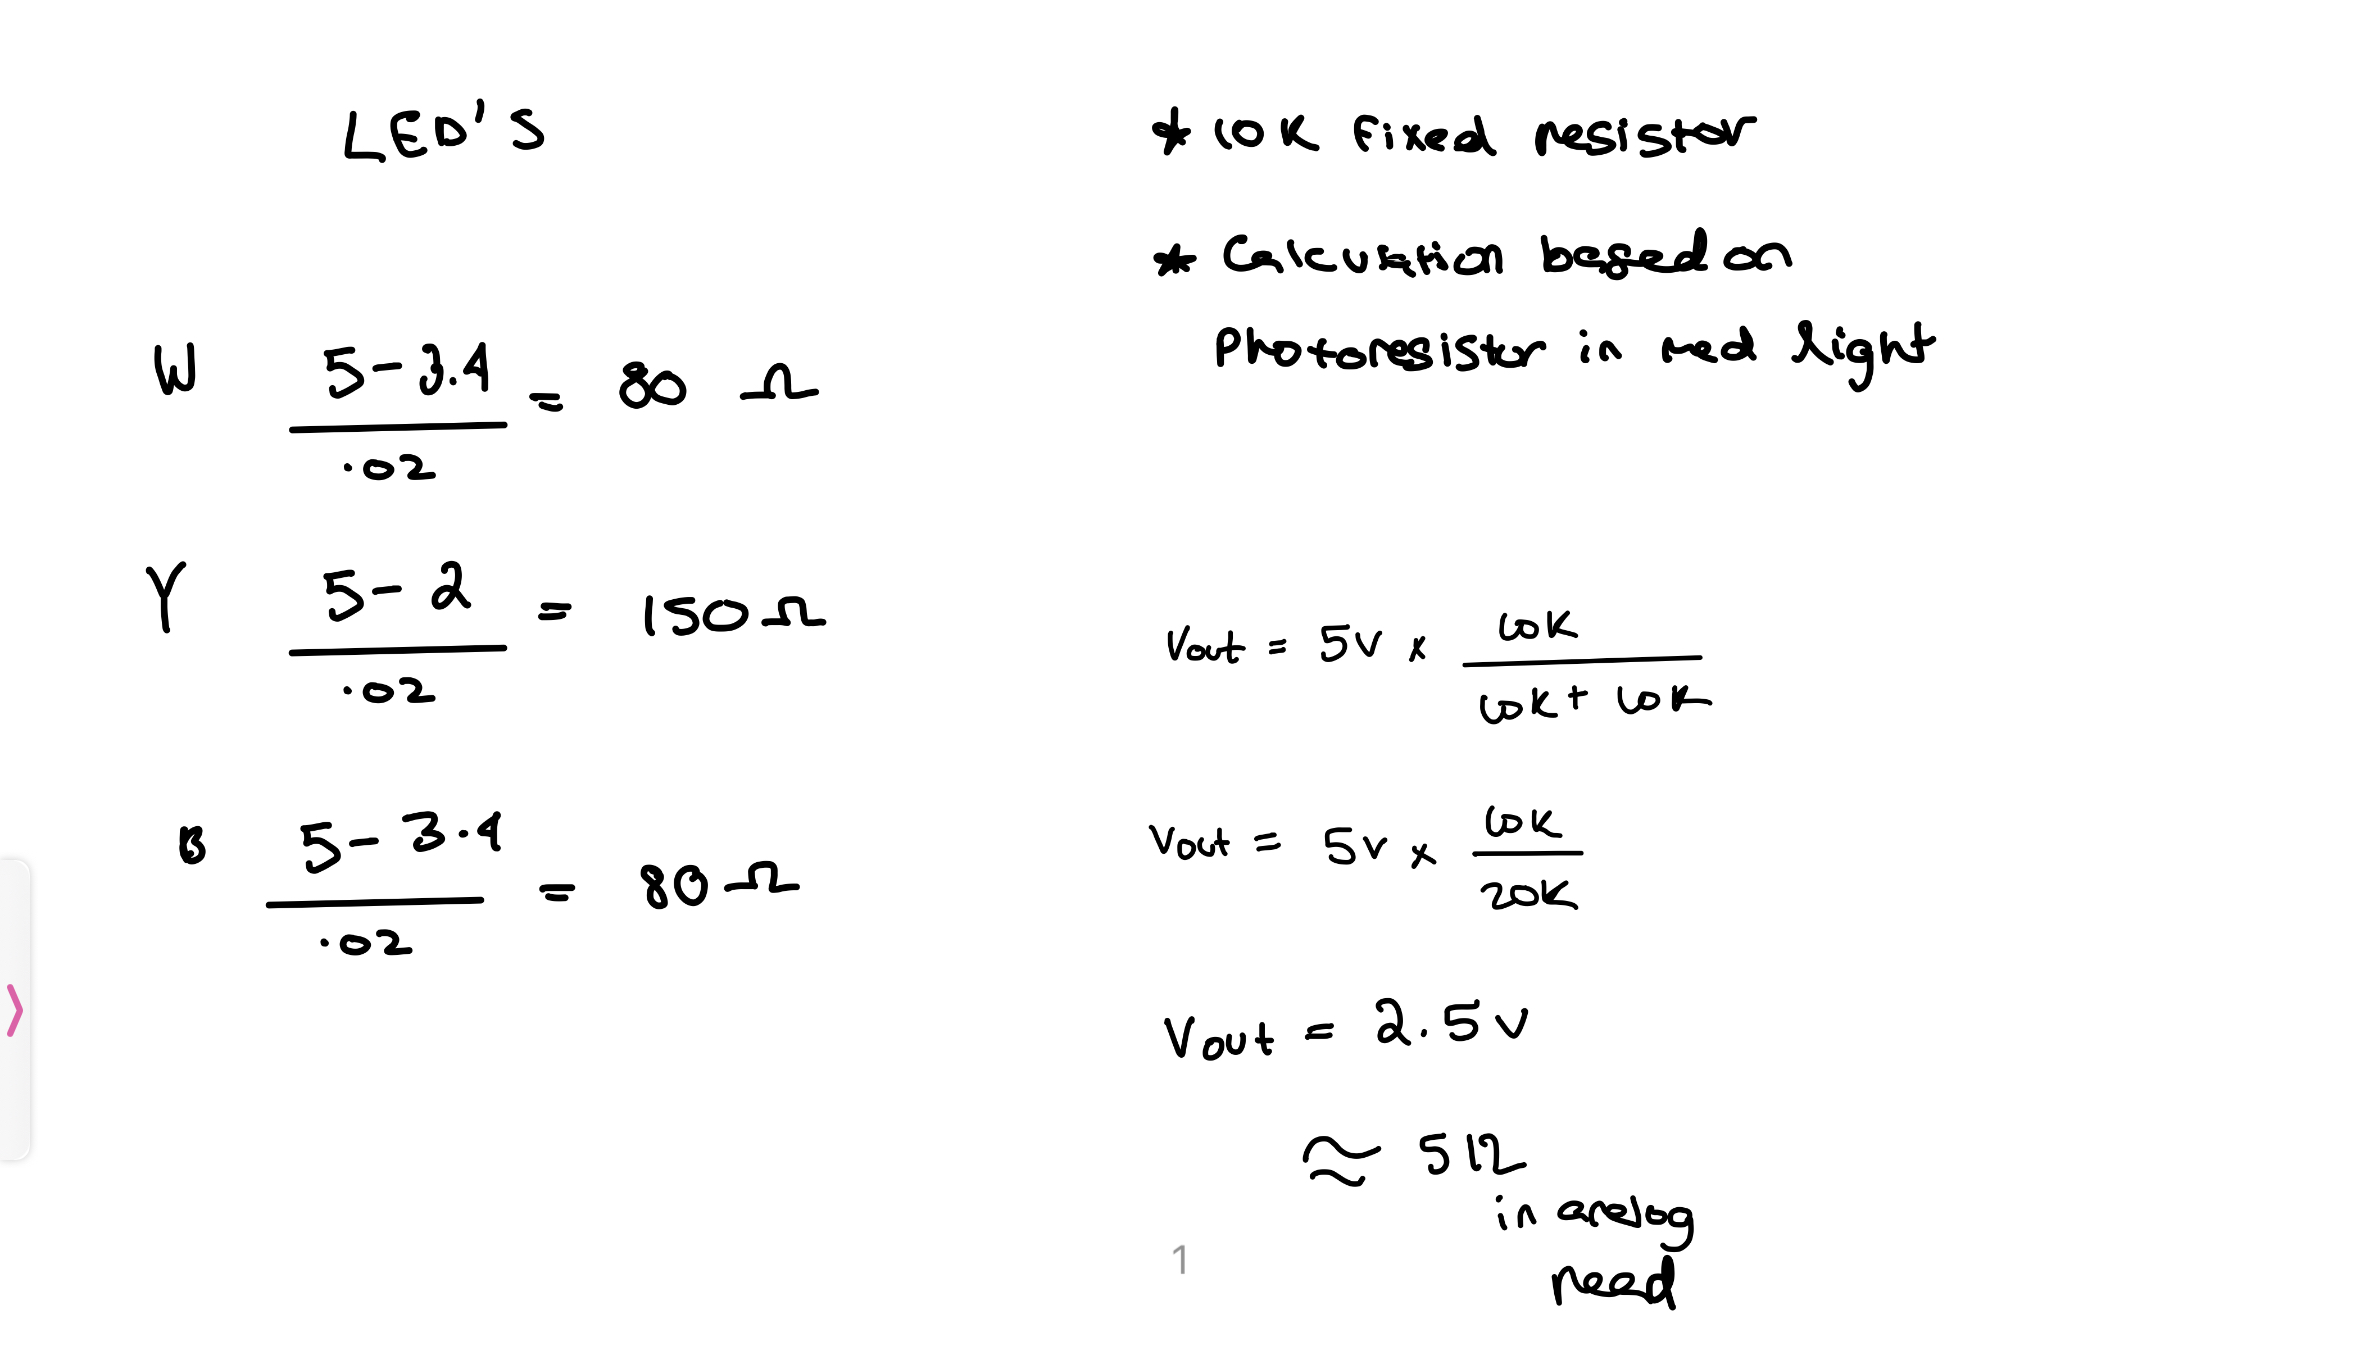 LED'S
W 5-3.4 = 80 Ω
.02
Y 5-2 = 150Ω
.02
B 5-3.4 = 80Ω
.02
* 10K Fixed resistor
* Calculation based on
Photoresistor in med light
Vout = 5v x 10K
10K + 10K
Vout = 5v x 10K
20K
Vout = 2.5v
≈ 512
in analog
read
1